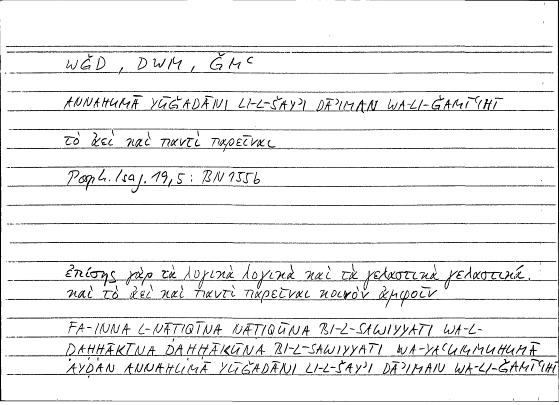 WǦD, DWM, ǦMʿ
ANNAHUMĀ YŪǦADĀNI LI-L-ŠAYʾI DĀʾIMAN WA-LI-ǦAMĪʿIHĪ
τὸ ἀεὶ καὶ παντὶ παρεῖναι
Porph. Isag. 19,5: BN 155b
ἐπίσης γὰρ τὰ λογικὰ λογικὰ καὶ τὰ γελαστικὰ γελαστικά.
καὶ τὸ ἀεὶ καὶ παντὶ παρεῖναι κοινὸν ἀμφοῖν
FA-INNA L-NĀṬIQĪNA NĀṬIQŪNA BI-L-SAWIYYATI WA-L-
ḌAḤḤĀKĪNA ḌAḤḤĀKŪNA BI-L-SAWIYYATI WA-YAʿUMMUHUMĀ
AYḌAN ANNAHUMĀ YŪǦADĀNI LI-L-ŠAYʾI DĀʾIMAN WA-LI-ǦAMĪʿIHĪ